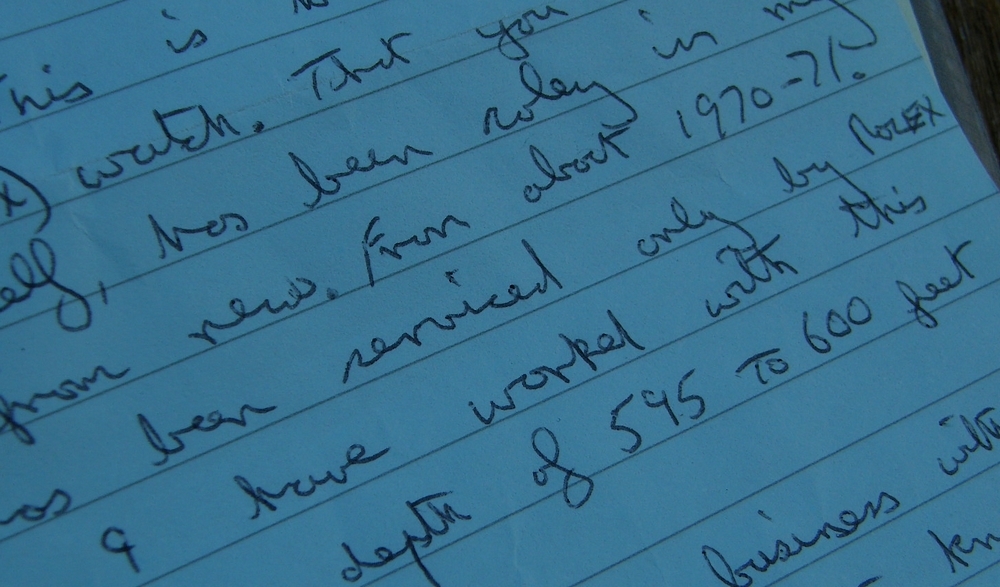 This is
x) watch. That you
elf, has been soley in my
from new. From about 1970-71.
as been serviced only by ROLEX
I have worked with this
depth of 595 To 600 feet
business with
kn